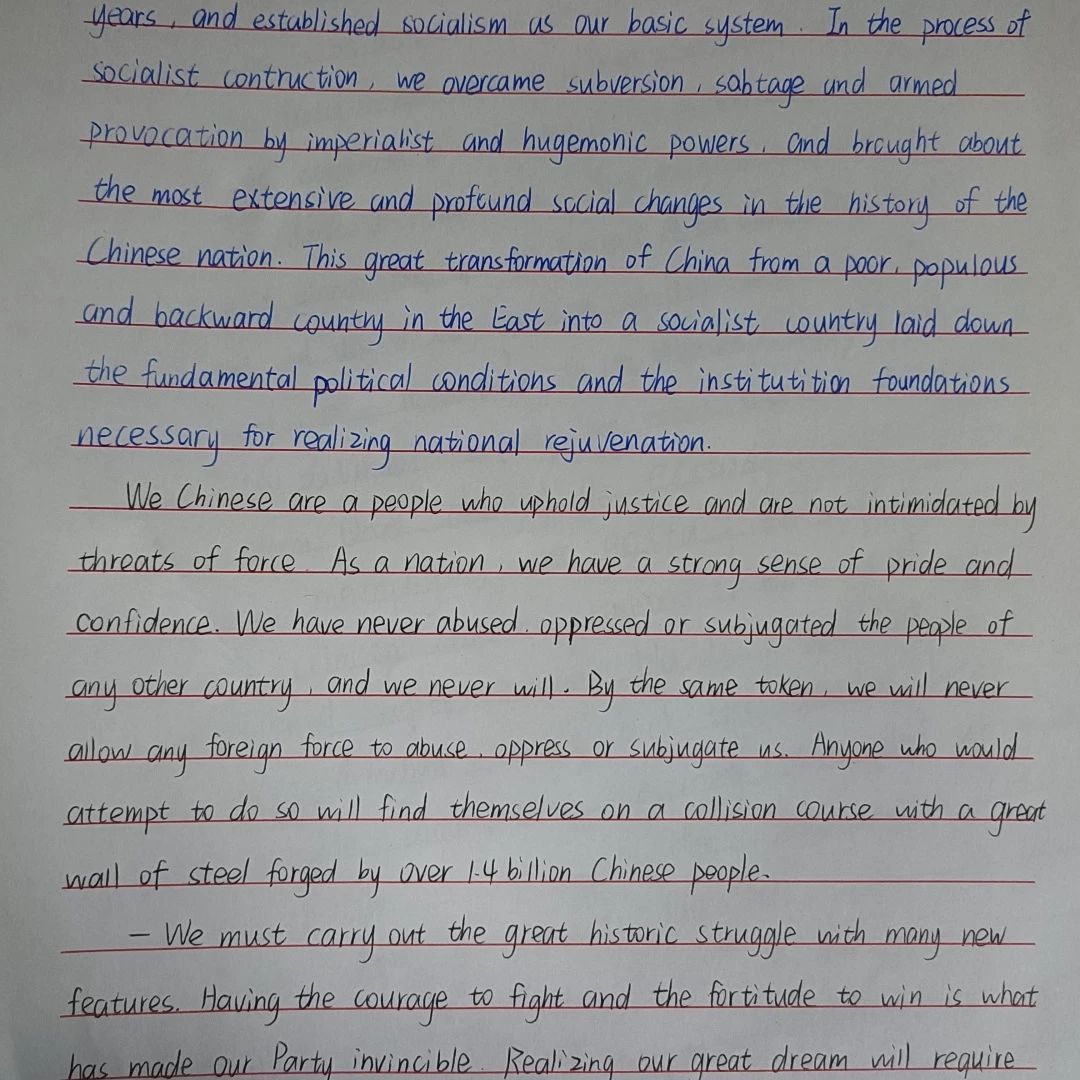 years, and established socialism as our basic system. In the process of
socialist contruction, we overcame subversion, sabtage and armed
provocation by imperialist and hugemonic powers, and brought about
the most extensive and profound social changes in the history of the
Chinese nation. This great transformation of China from a poor, populous
and backward country in the East into a socialist country laid down
the fundamental political conditions and the institutition foundations
necessary for realizing national rejuvenation.
We Chinese are a people who uphold justice and are not intimidated by
threats of force. As a nation, we have a strong sense of pride and
confidence. We have never abused, oppressed or subjugated the people of
any other country, and we never will. By the same token, we will never
allow any foreign force to abuse, oppress or subjugate us. Anyone who would
attempt to do so will find themselves on a collision course with a great
wall of steel forged by over 1.4 billion Chinese people.
— We must carry out the great historic struggle with many new
features. Having the courage to fight and the fortitude to win is what
has made our Party invincible. Realizing our great dream will require